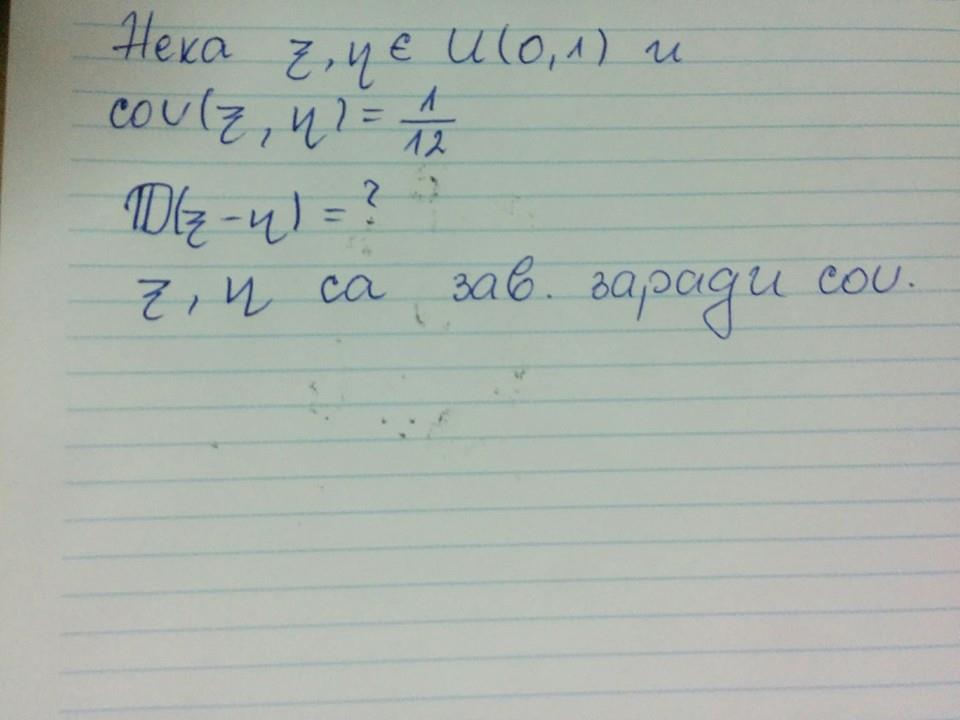 Нека ξ, η ∈ U(0,1) и
cov(ξ, η) = 1/12
𝔻(ξ - η) = ?
ξ, η са зав. заради cov.